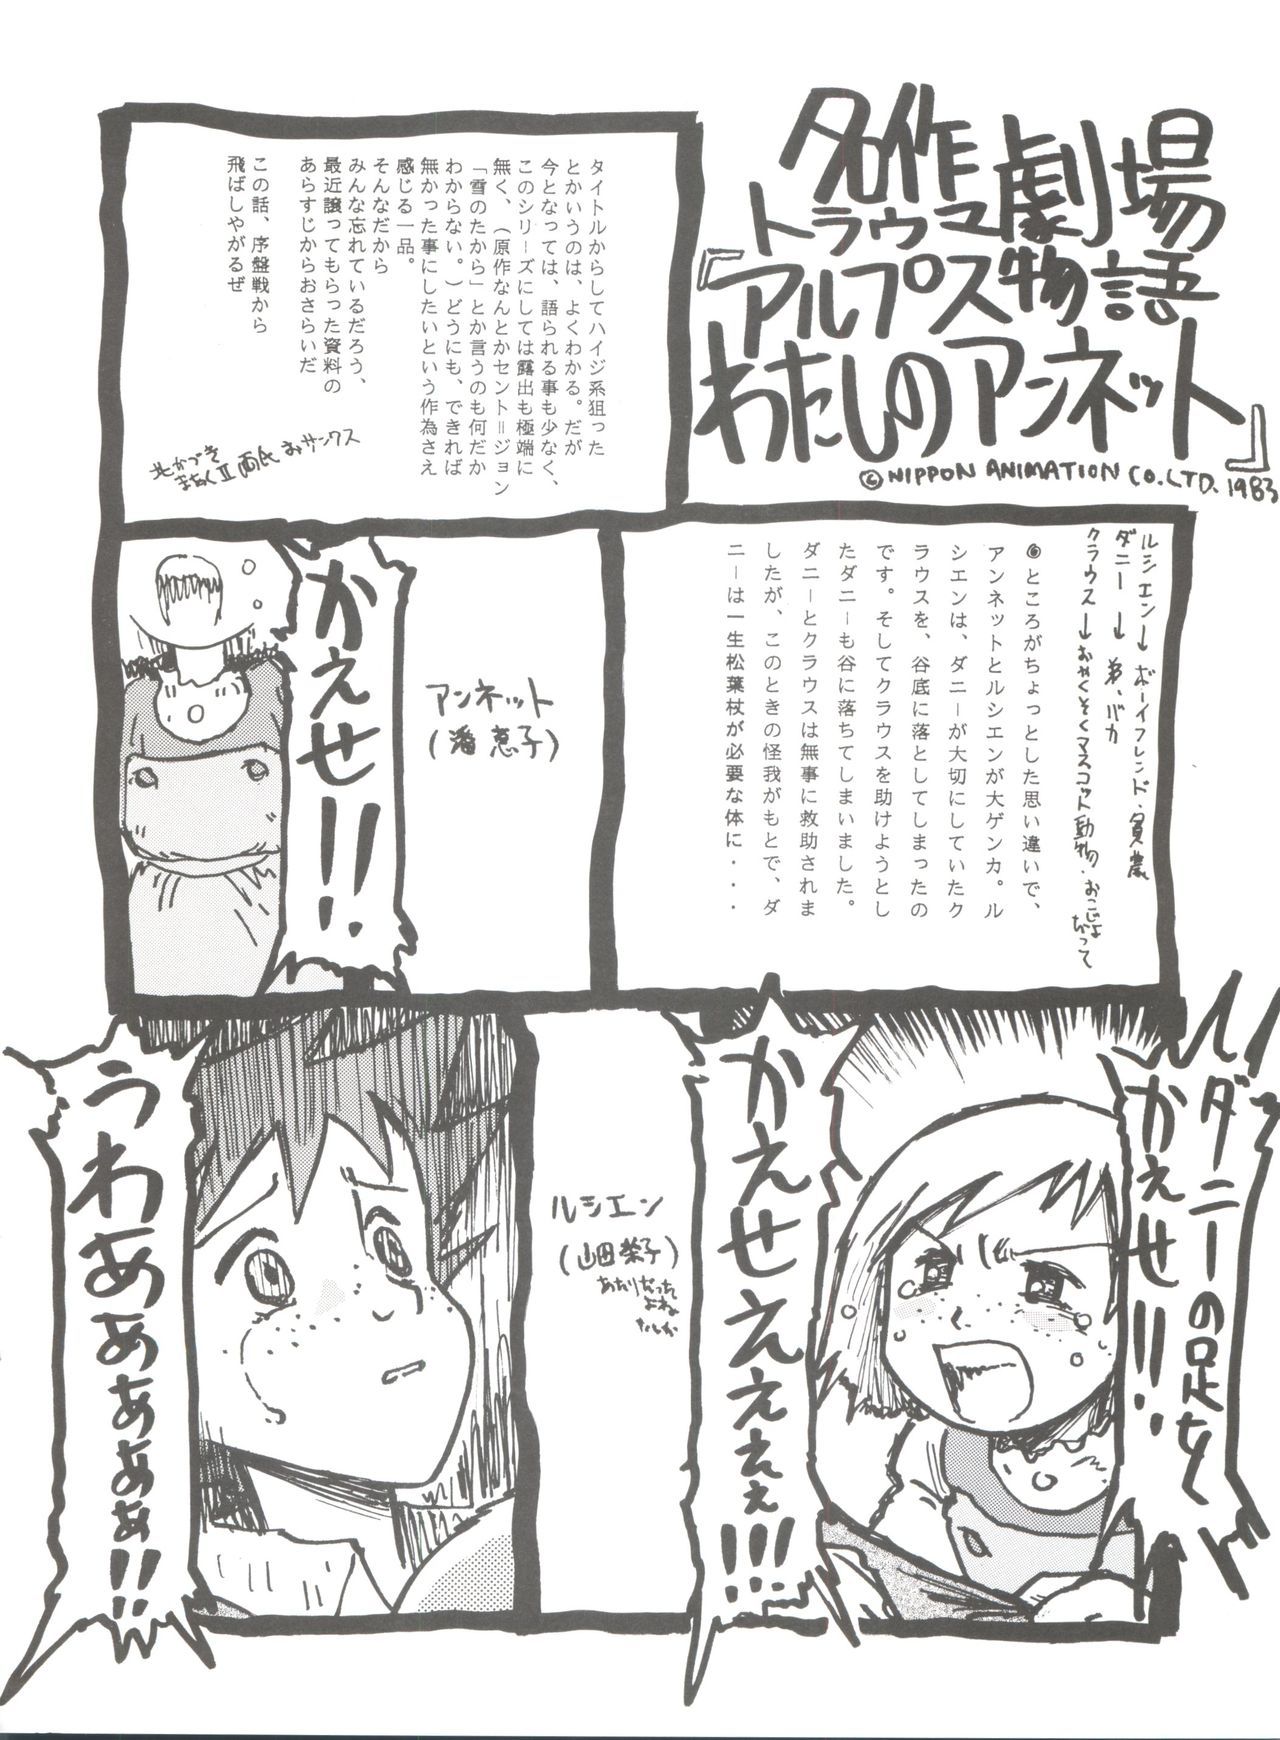 名作
トラウマ劇場
『アルプス物語
わたしのアンネット』
©NIPPON ANIMATION CO.LTD. 1983
タイトルからしてハイジ系狙った
とかいうのは、よくわかる。だが
今となっては、語られる事も少なく、
このシリーズにしては露出も極端に
無く、（原作なんとかセント＝ジョン
「雪のたから」とか言うのも何だか
わからない。）どうにも、できれば
無かった事にしたいという作為さえ
感じる一品。
そんなだから
みんな忘れているだろう、
最近譲ってもらった資料の
あらすじからおさらいだ
この話、序盤戦から
飛ばしやがるぜ
北かづき
まあくⅡ両氏 みサンクス
ルシエン→ボーイフレンド・貧農
ダニー→弟、バカ
クラウス→おやくそくマスコット動物・おこじょ
だって
●ところがちょっとした思い違いで、
アンネットとルシエンが大ゲンカ。ル
シエンは、ダニーが大切にしていたク
ラウスを、谷底に落としてしまったの
です。そしてクラウスを助けようとし
たダニーも谷に落ちてしまいました。
ダニーとクラウスは無事に救助されま
したが、このときの怪我がもとで、ダ
ニーは一生松葉杖が必要な体に・・・
アンネット
（潘恵子）
かえせ!!
ダニーの足を
かえせ!!
かえせええぇぇぇ!!!
ルシエン
（山田栄子）
あたりだった
よね
たしか
うわあぁぁぁぁぁ!!